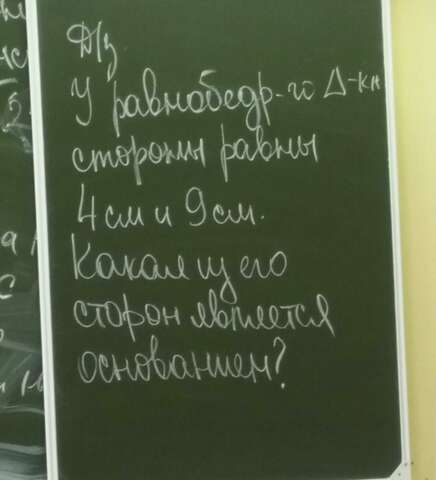 Д/з.
У равнобедр-го Δ-ка
стороны равны
4 см и 9 см.
Какая из его
сторон является
основанием?